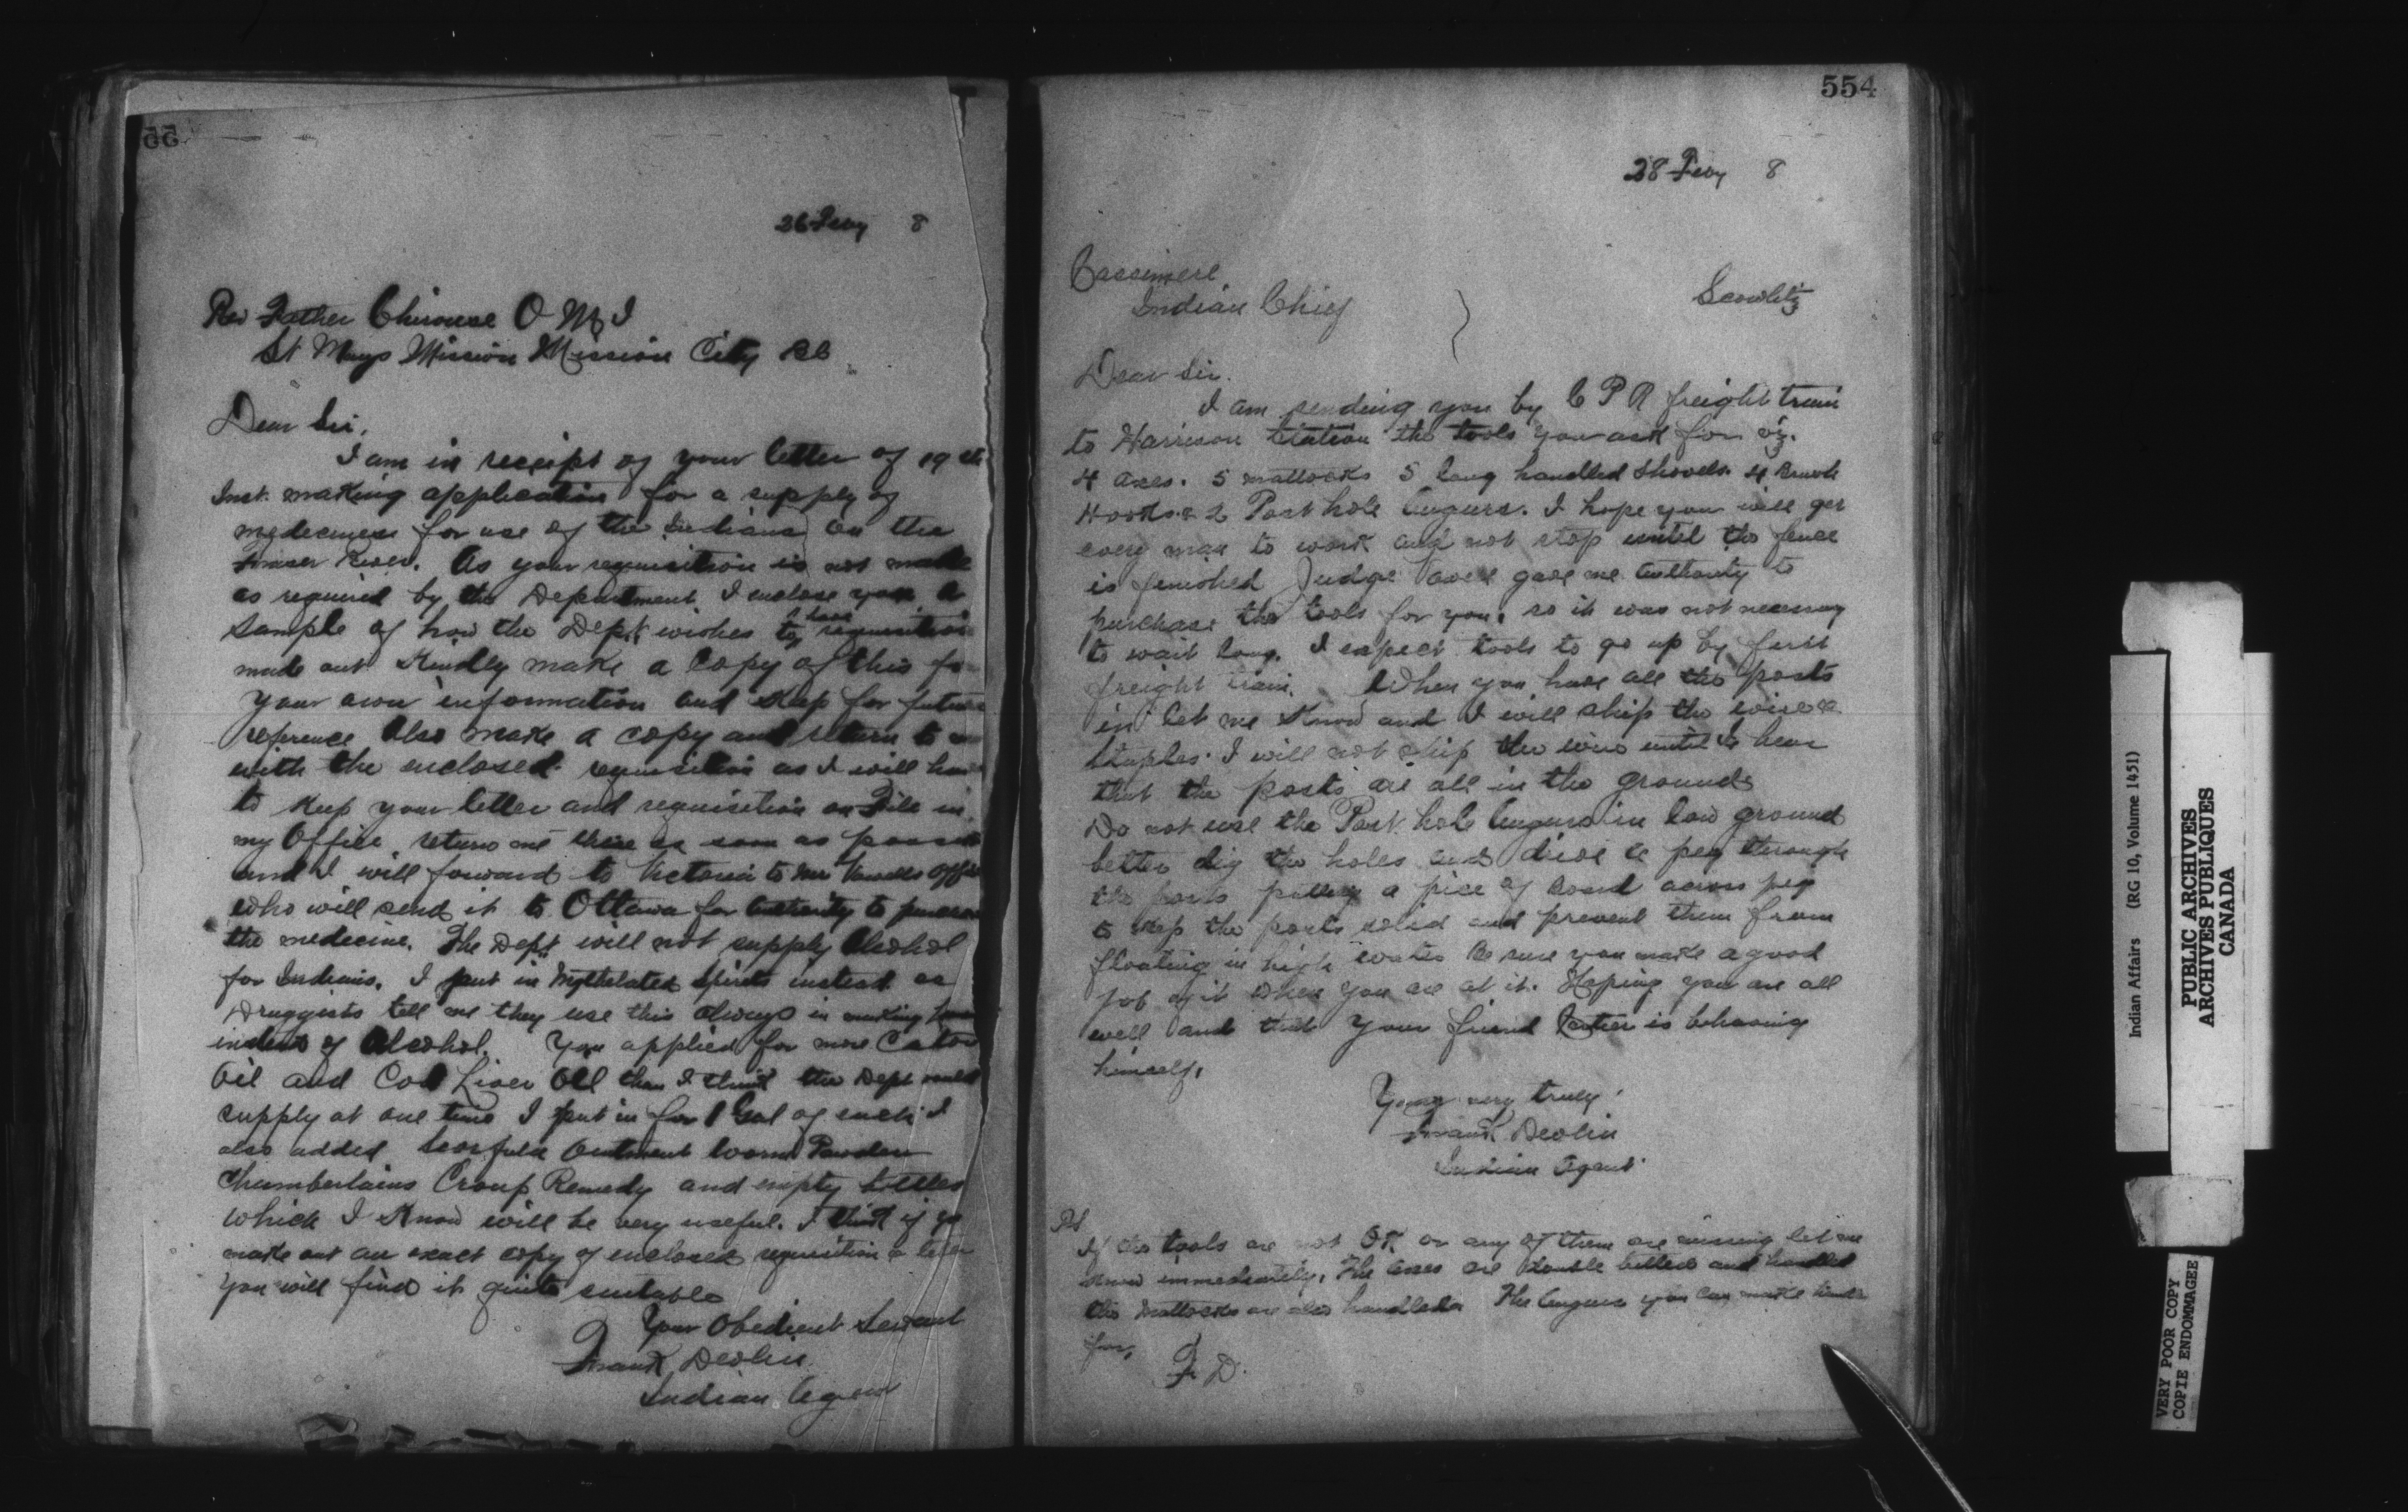 26 Feby 8
Rev Father Chirouse O M I
St Marys Mission Mission City BC
Dear Sir,
I am in receipt of your letter of 19th
Inst. making application for a supply of
medecines for use of the Indians on the
Fraser River. As your requisition is not made
as required by the Department I enclose you a
sample of how the Dept wishes to have requisitions
made out Kindly make a copy of this for
your own information and Keep for future
reference also make a copy and return to me
with the enclosed requisition as I will have
to Keep your letter and requisition on File in
my Office return me these as soon as possible
and I will forward to Victoria to Mr Vowells Office
who will send it to Ottawa for authority to purchase
the medicine. The Dept will not supply Alcohol
for Indians. I put in Mythelated Spirits instead as
Druggists tell me they use this always in making
instead of Alcohol. You applied for more Castor
Oil and Cod Liver Oil than I think the Dept would
supply at one time I put in for 1 Gal of each I
also added Ointment Worm Powders
Chamberlains Croup Remedy and empty bottles
which I Know will be very useful. I think if you
make out an exact copy of enclosed requisition & letter
you will find it quite suitable
Your Obedient Servant
Frank Devlin
Indian Agent
554
28 Feby 8
Cassimere
Indian Chief
Scowlitz
Dear Sir.
I am sending you by C P R freight train
to Harrison Station the tools you ask for viz.
4 axes. 5 mattocks 5 long handled shovels. 4 Brush
Hooks. & 2 Post hole Augurs. I hope you will get
every man to work and not stop until the fence
is finished Judge gave me authority to
purchase the tools for you. so it was not necessary
to wait long. I expect tools to go up by first
freight train. When you have all the posts
in let me Know and I will ship the wire &
staples. I will not ship the wire until I hear
that the posts are all in the ground
Do not use the Post hole Augurs in low ground
better dig the holes and drive a peg through
the posts putting a pice of board across peg
to keep the posts solid and prevent them from
floating in high water Be sure you make a good
job of it when you are at it. Hoping you are all
well and that your friend is behaving
himself.
Yours very truly
Frank Devlin
Indian Agent
PS
If the tools are not OK or any of them are missing let me
know immediately. The axes are double bitted and handled
the mattocks are also handled. The Augurs you can make handles
for,
F. D.
Indian Affairs (RG 10, Volume 1451)
PUBLIC ARCHIVES
ARCHIVES PUBLIQUES
CANADA
VERY POOR COPY
COPIE ENDOMMAGEE